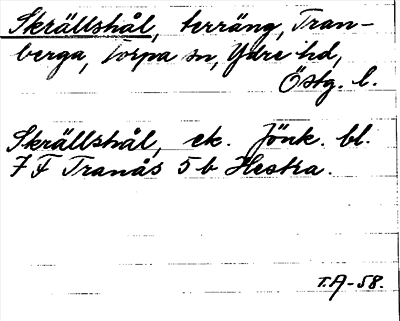 Skrällshål, terräng, Tran-
berga, Torpa sn, Ydre hd,
Östg. l.
Skrällshål, ek. Jönk. bl.
7 F Tranås 5 b Hestra.
T.A-58.